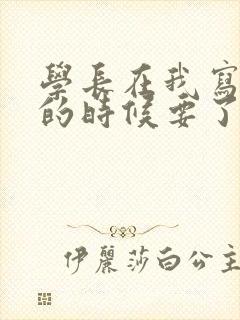 學長在我寫
的時候要了
伊麗莎白公主